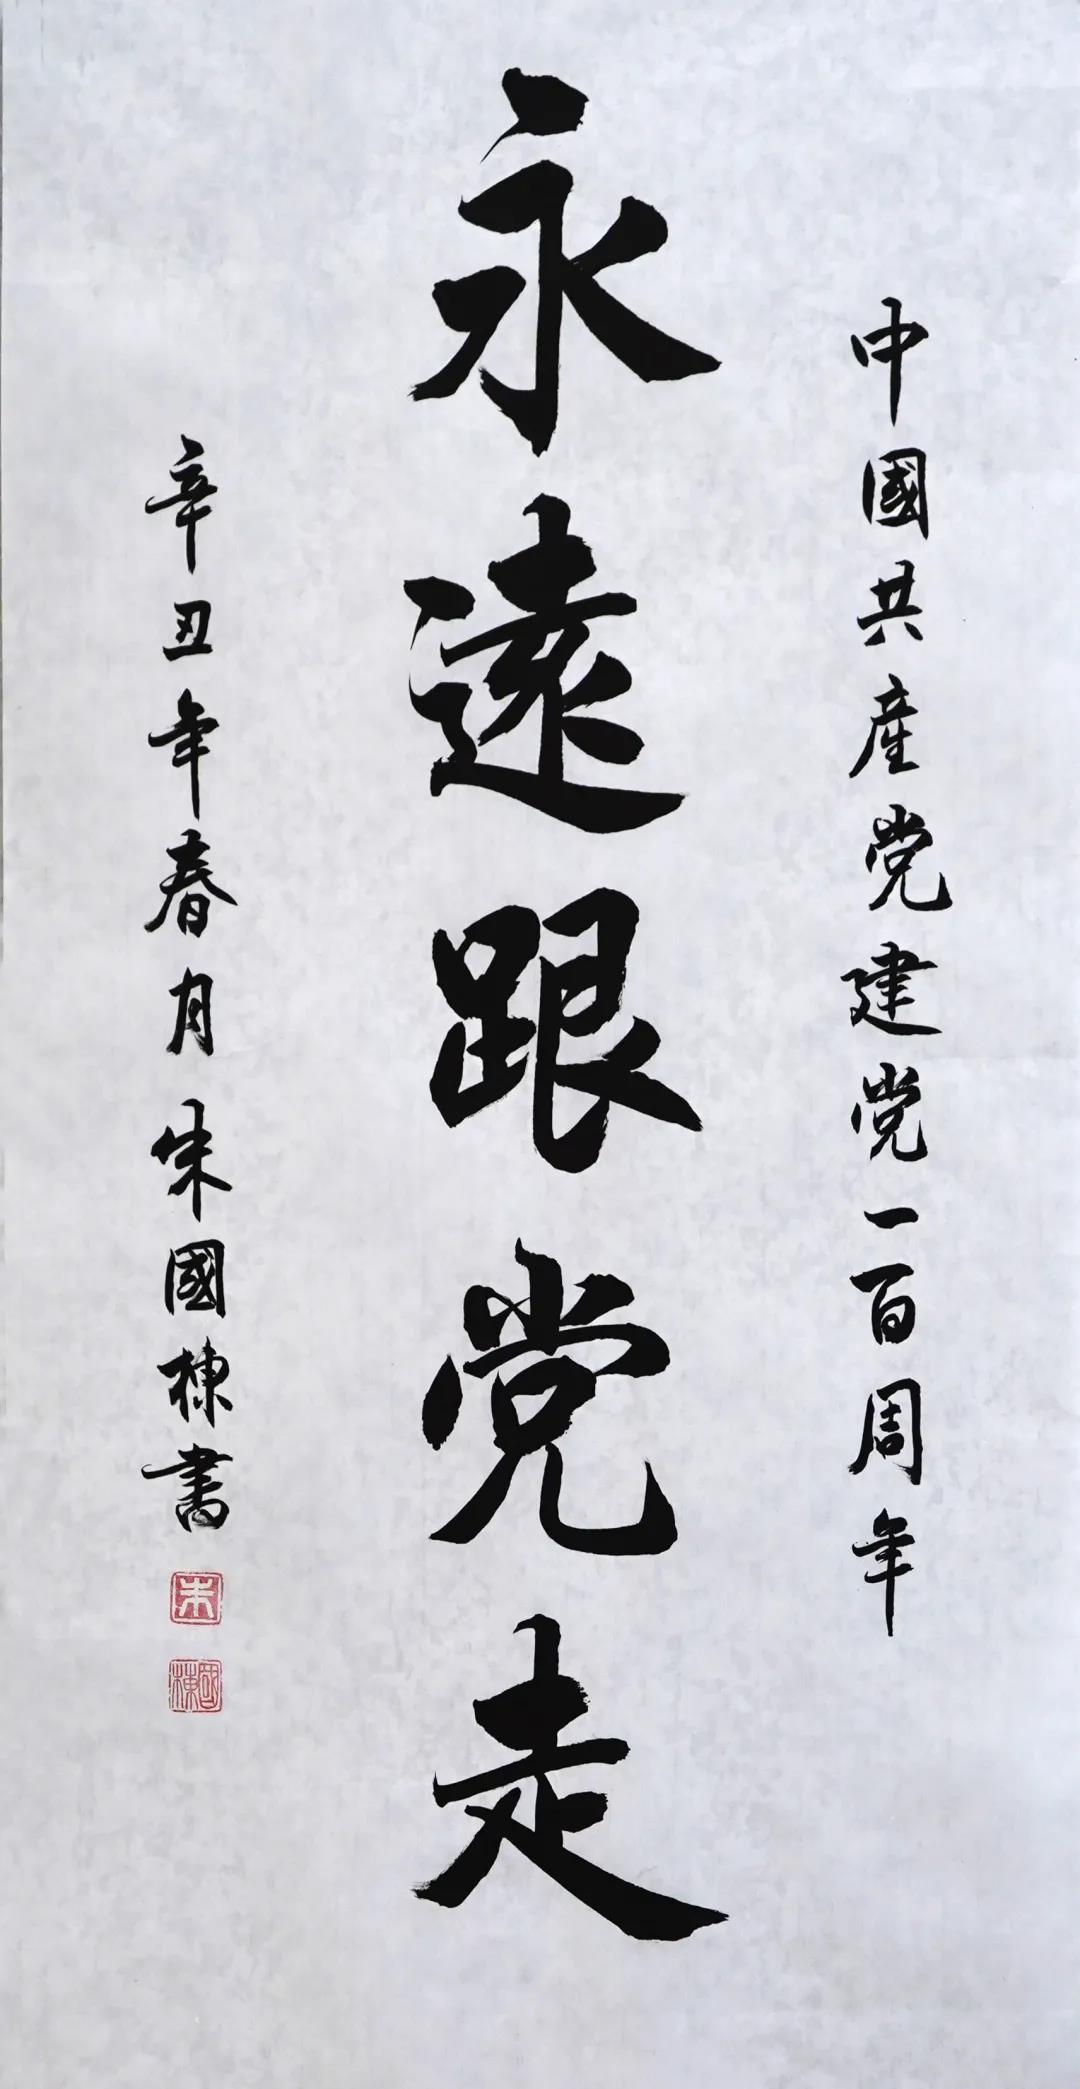 中國共産党建党一百周年
永遠跟党走
辛丑年春月朱國棟書
朱
國棟